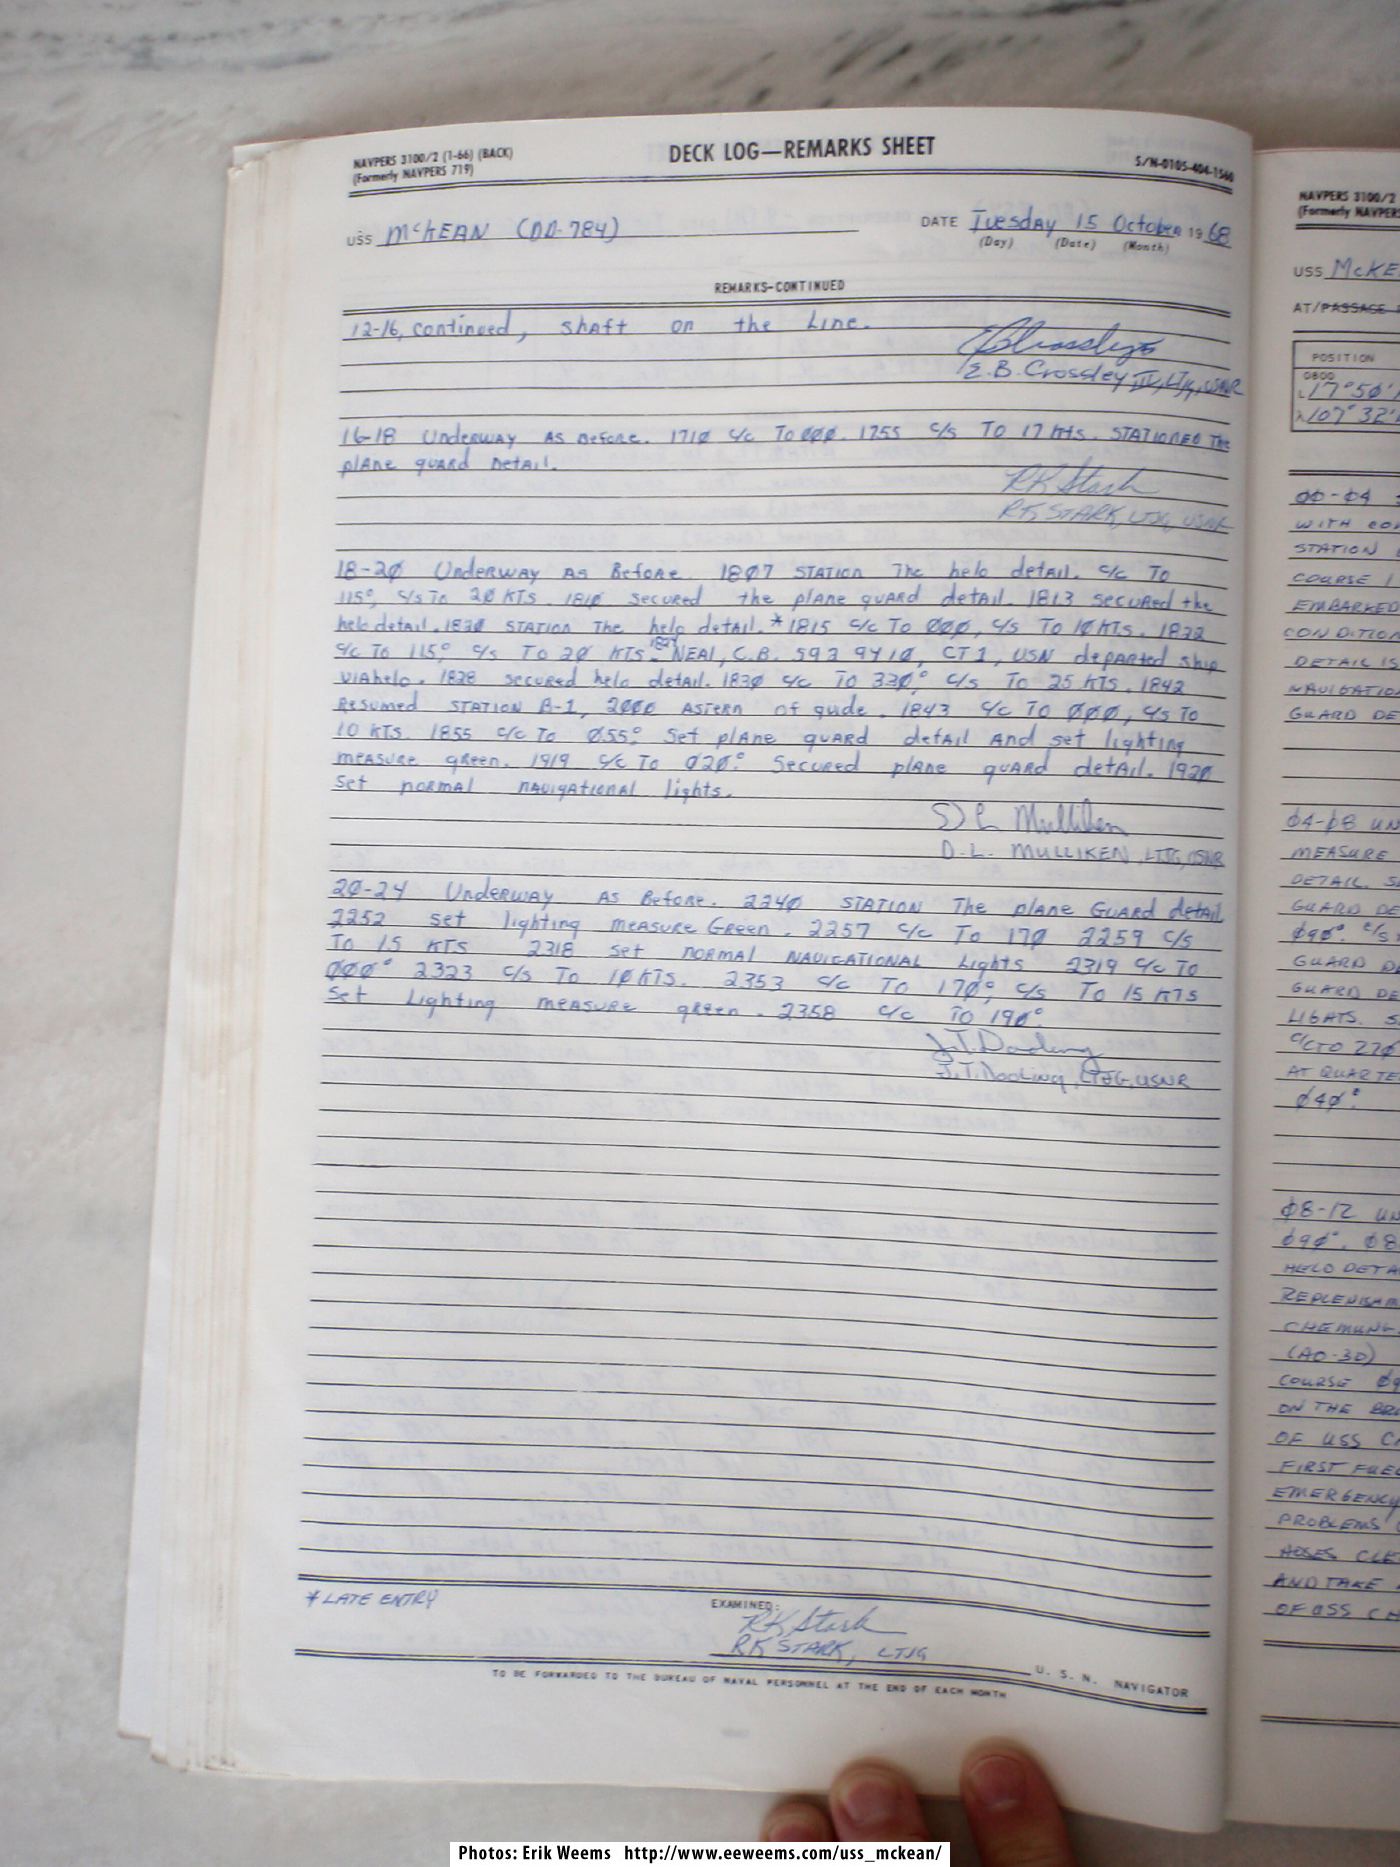 NAVPERS 3100/2 (1-66) (BACK)
(Formerly NAVPERS 719)
DECK LOG—REMARKS SHEET
S/N-0105-404-1560
USS McKEAN (DD-784)
DATE Tuesday 15 October 1968
(Day) (Date) (Month)
REMARKS-CONTINUED
12-16, continued, shaft on the Line.
E.B. Crossley IV, LTJG, USNR
16-18 Underway As Before. 171Ø C/C To ØØØ. 1755 C/S To 17 KTS. STATIONED The
plane guard Detail.
RK Stark
R.K. STARK, LTJG, USNR
18-2Ø Underway As Before. 18Ø7 STATION The helo detail. C/C To
115°, C/S To 2Ø KTS. 181Ø secured the plane guard detail. 1813 secured the
helo detail. 182Ø STATION The helo detail. *1815 C/C To ØØØ, C/S To 1Ø KTS. 1822
C/C To 115° C/S To 2Ø KTS. NEAL, C.B. 592 94 1Ø, CT1, USN departed ship
VIA helo. 1828 secured helo detail. 183Ø C/C To 33Ø° C/S To 25 KTS. 1842
Resumed STATION B-1, 2ØØØ Astern of guide. 1843 C/C To ØØØ, C/S To
10 KTS. 1855 C/C To Ø55° Set plane guard detail and set lighting
measure green. 1919 C/C To Ø2Ø° Secured plane guard detail. 192Ø
Set normal navigational lights.
D L Mulliken
D.L. MULLIKEN, LTJG, USNR
2Ø-24 Underway As Before. 224Ø STATION The plane Guard detail
2252 set lighting measure Green. 2257 C/C To 17Ø 2259 C/S
To 15 KTS 2318 Set normal NAVIGATIONAL Lights 2319 C/C To
ØØØ° 2323 C/S To 1Ø KTS. 2353 C/C To 17Ø°, C/S To 15 KTS
Set Lighting measure green. 2358 C/C To 19Ø°
J.T. Dooling
J.T. Dooling, LTJG, USNR
* LATE ENTRY
EXAMINED:
RK Stark
RK STARK, LTJG
U. S. N. NAVIGATOR
TO BE FORWARDED TO THE BUREAU OF NAVAL PERSONNEL AT THE END OF EACH MONTH
NAVPERS 3100/2
(Formerly NAVPERS
USS McKE
AT/PASSAGE
POSITION
0800
L 17° 50'
λ 107° 32'
ØØ-Ø4
WITH CO
STATION
COURSE 1
EMBARKED
CONDITION
DETAIL IS
NAVIGATIO
GUARD DE
Ø4-Ø8 UN
MEASURE
DETAIL. S
GUARD DE
Ø9Ø° C/S
GUARD DE
GUARD DE
LIGHTS. S
C/C TO 27Ø
AT QUARTE
Ø4Ø°
Ø8-12 UN
Ø9Ø°. Ø8
HELO DETA
REPLENISHM
CHEMUNG
(AO-30)
COURSE Ø9
ON THE BR
OF USS C
FIRST FUE
EMERGENCY
PROBLEMS
HOSES CLE
AND TAKE
OF USS CH
Photos: Erik Weems http://www.eeweems.com/uss_mckean/